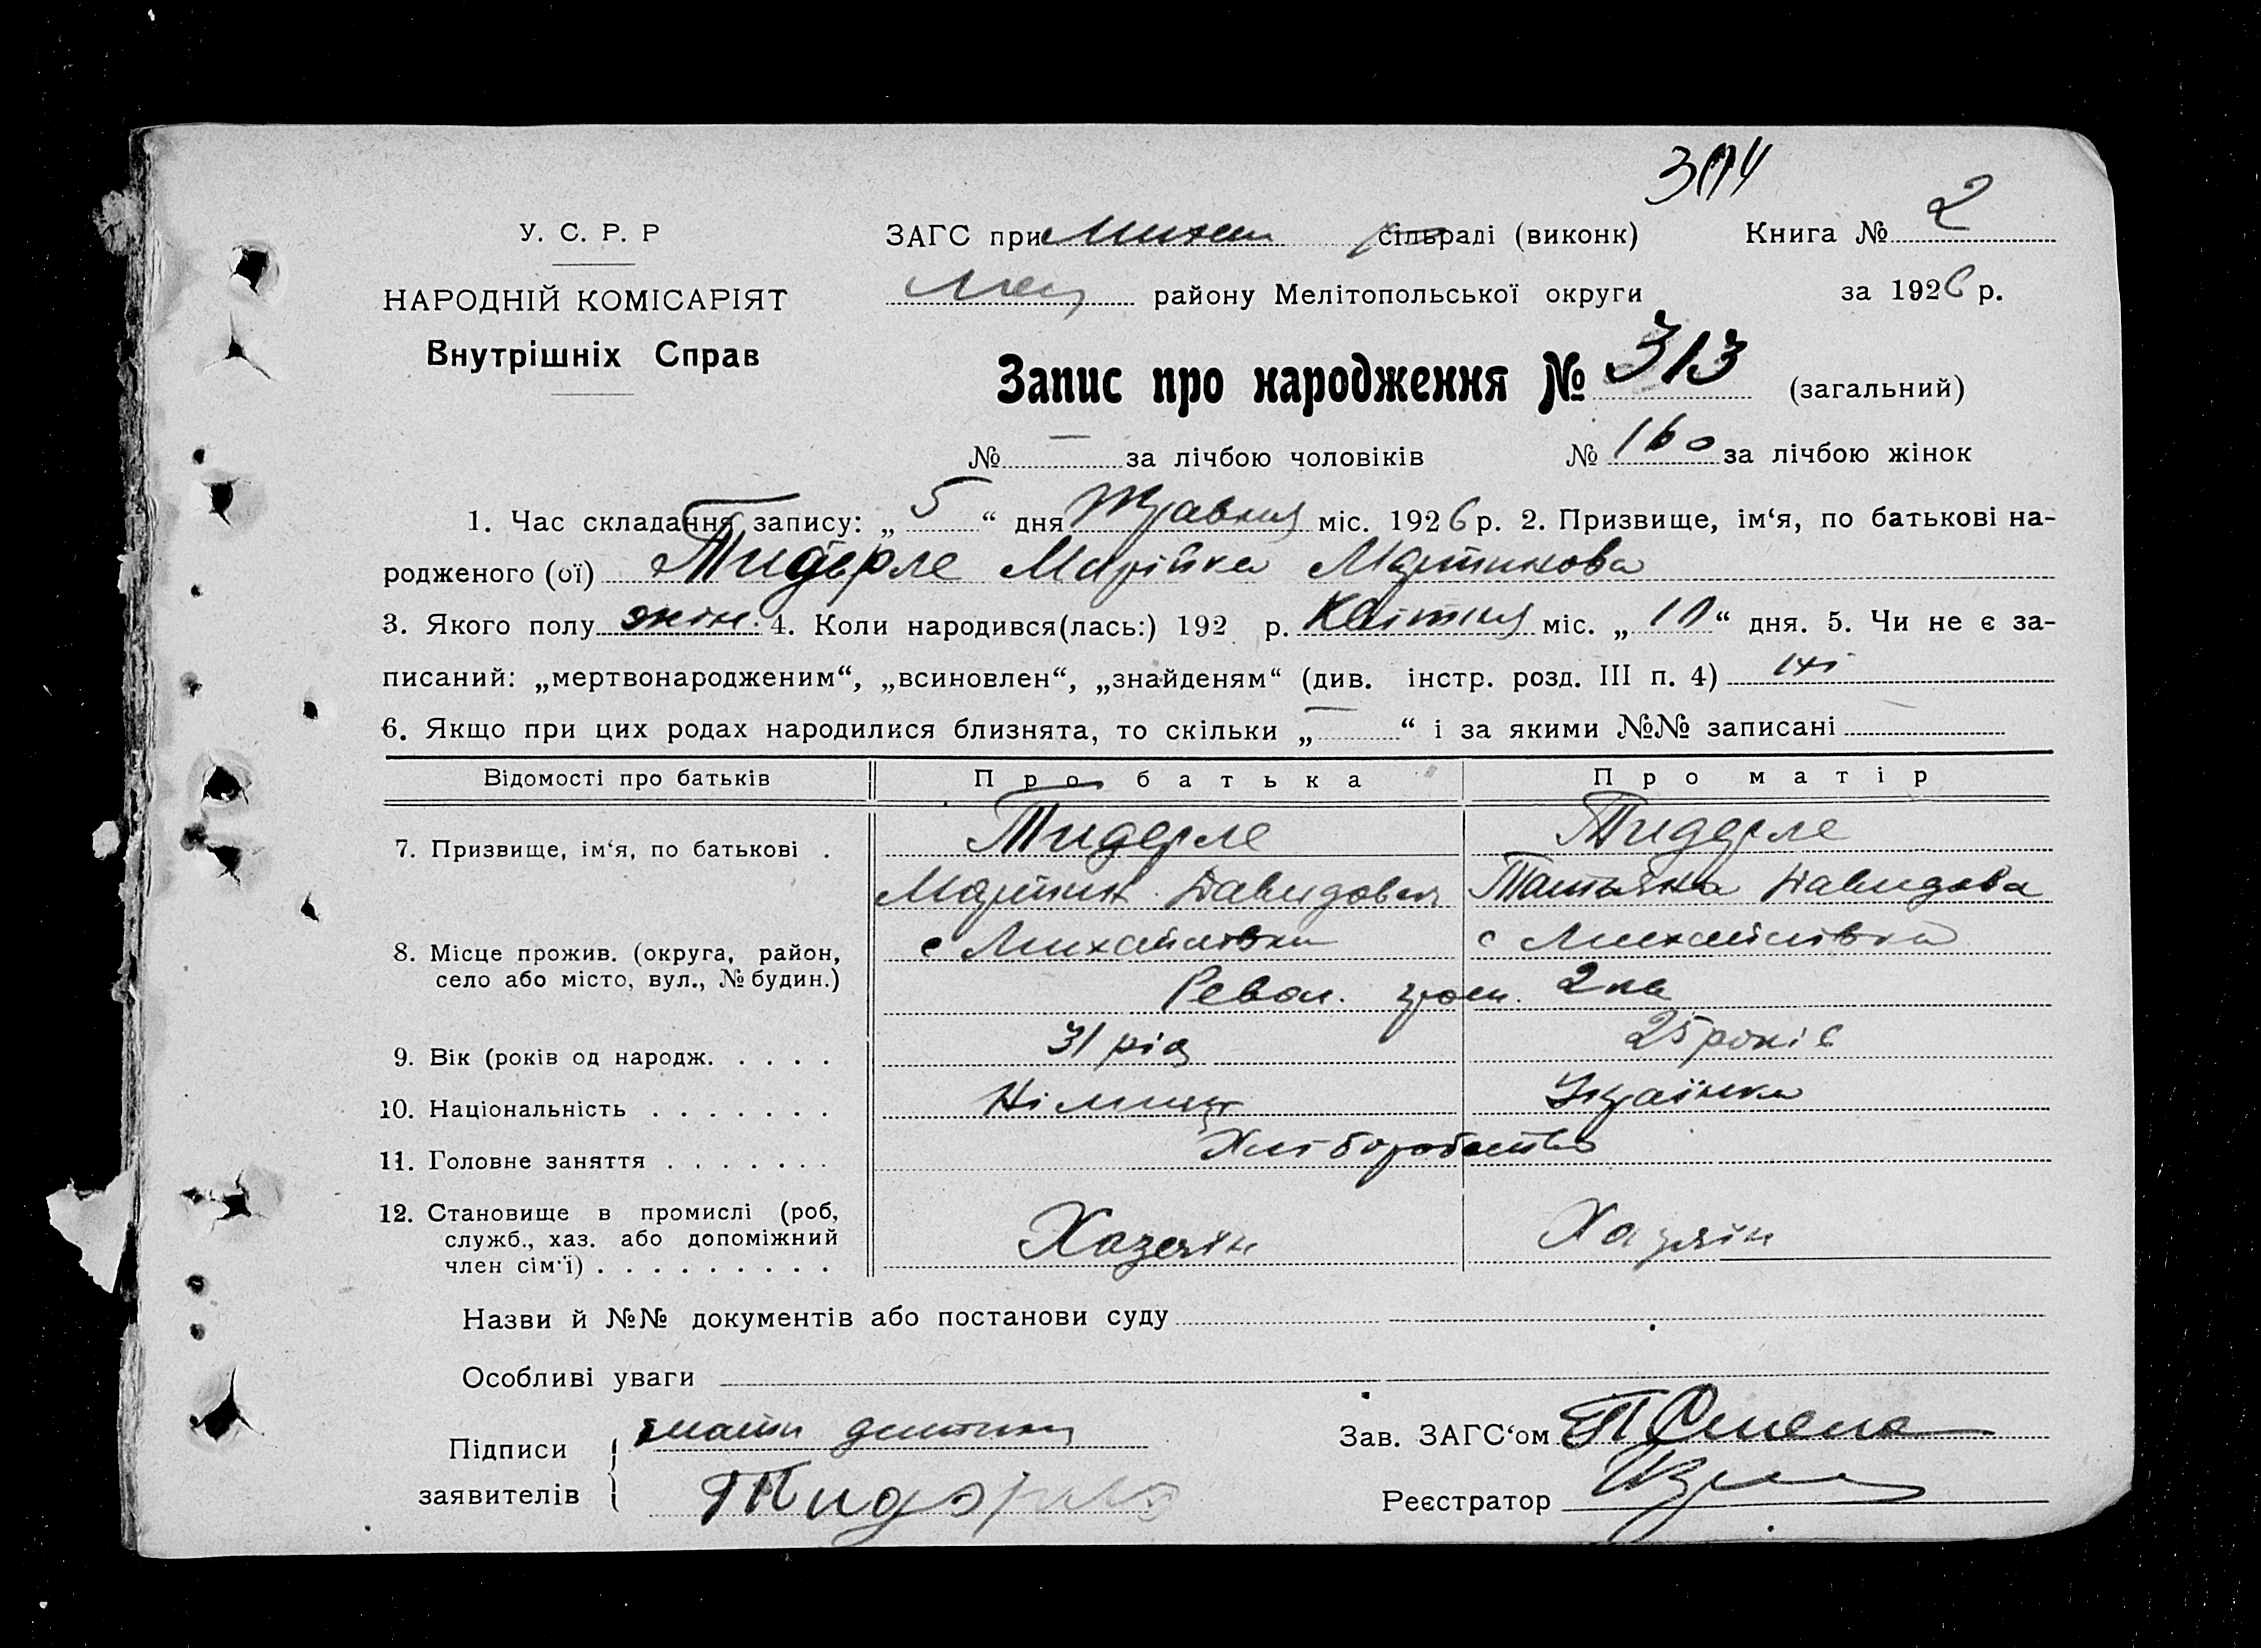 304
У. С. Р. Р
ЗАГС при Михай сільраді (виконк) Книга № 2
НАРОДНІЙ КОМІСАРІЯТ
району Мелітопольської округи за 1926 р.
Внутрішніх Справ
Запис про народження № 313 (загальний)
№ — за лічбою чоловіків № 160 за лічбою жінок
1. Час складання запису: „ 5 “ дня Травня міс. 1926 р. 2. Призвище, ім‘я, по батькові на-
родженого (ої) Тидерле Марійка Мартинова
3. Якого полу жін. 4. Коли народився(лась:) 192 р. Квітня міс. „ 10 “ дня. 5. Чи не є за-
писаний: „мертвонародженим“, „всиновлен“, „знайденям“ (див. інстр. розд. III п. 4) ні
6. Якщо при цих родах народилися близнята, то скільки „ — “ і за якими №№ записані
Відомості про батьків Про батька Про матір
7. Призвище, ім‘я, по батькові . Тидерле Тидерле
Мартин Давидович Татьяна Давидова
8. Місце прожив. (округа, район, с Михайлівка с Михайлівка
село або місто, вул., № будин.) Револ. гром. 2 ка
9. Вік (років од народж. . . . . 31 рід 25 років
10. Національність . . . . . . . Німець Українка
11. Головне заняття . . . . . . . Хліборобство
12. Становище в промислі (роб,
служб., хаз. або допоміжний Хазяїн Хазяїн
член сім‘ї) . . . . . . . . .
Назви й №№ документів або постанови суду
Особливі уваги
Підписи мати дитини Зав. ЗАГС‘ом
заявителів Тидерле Реєстратор